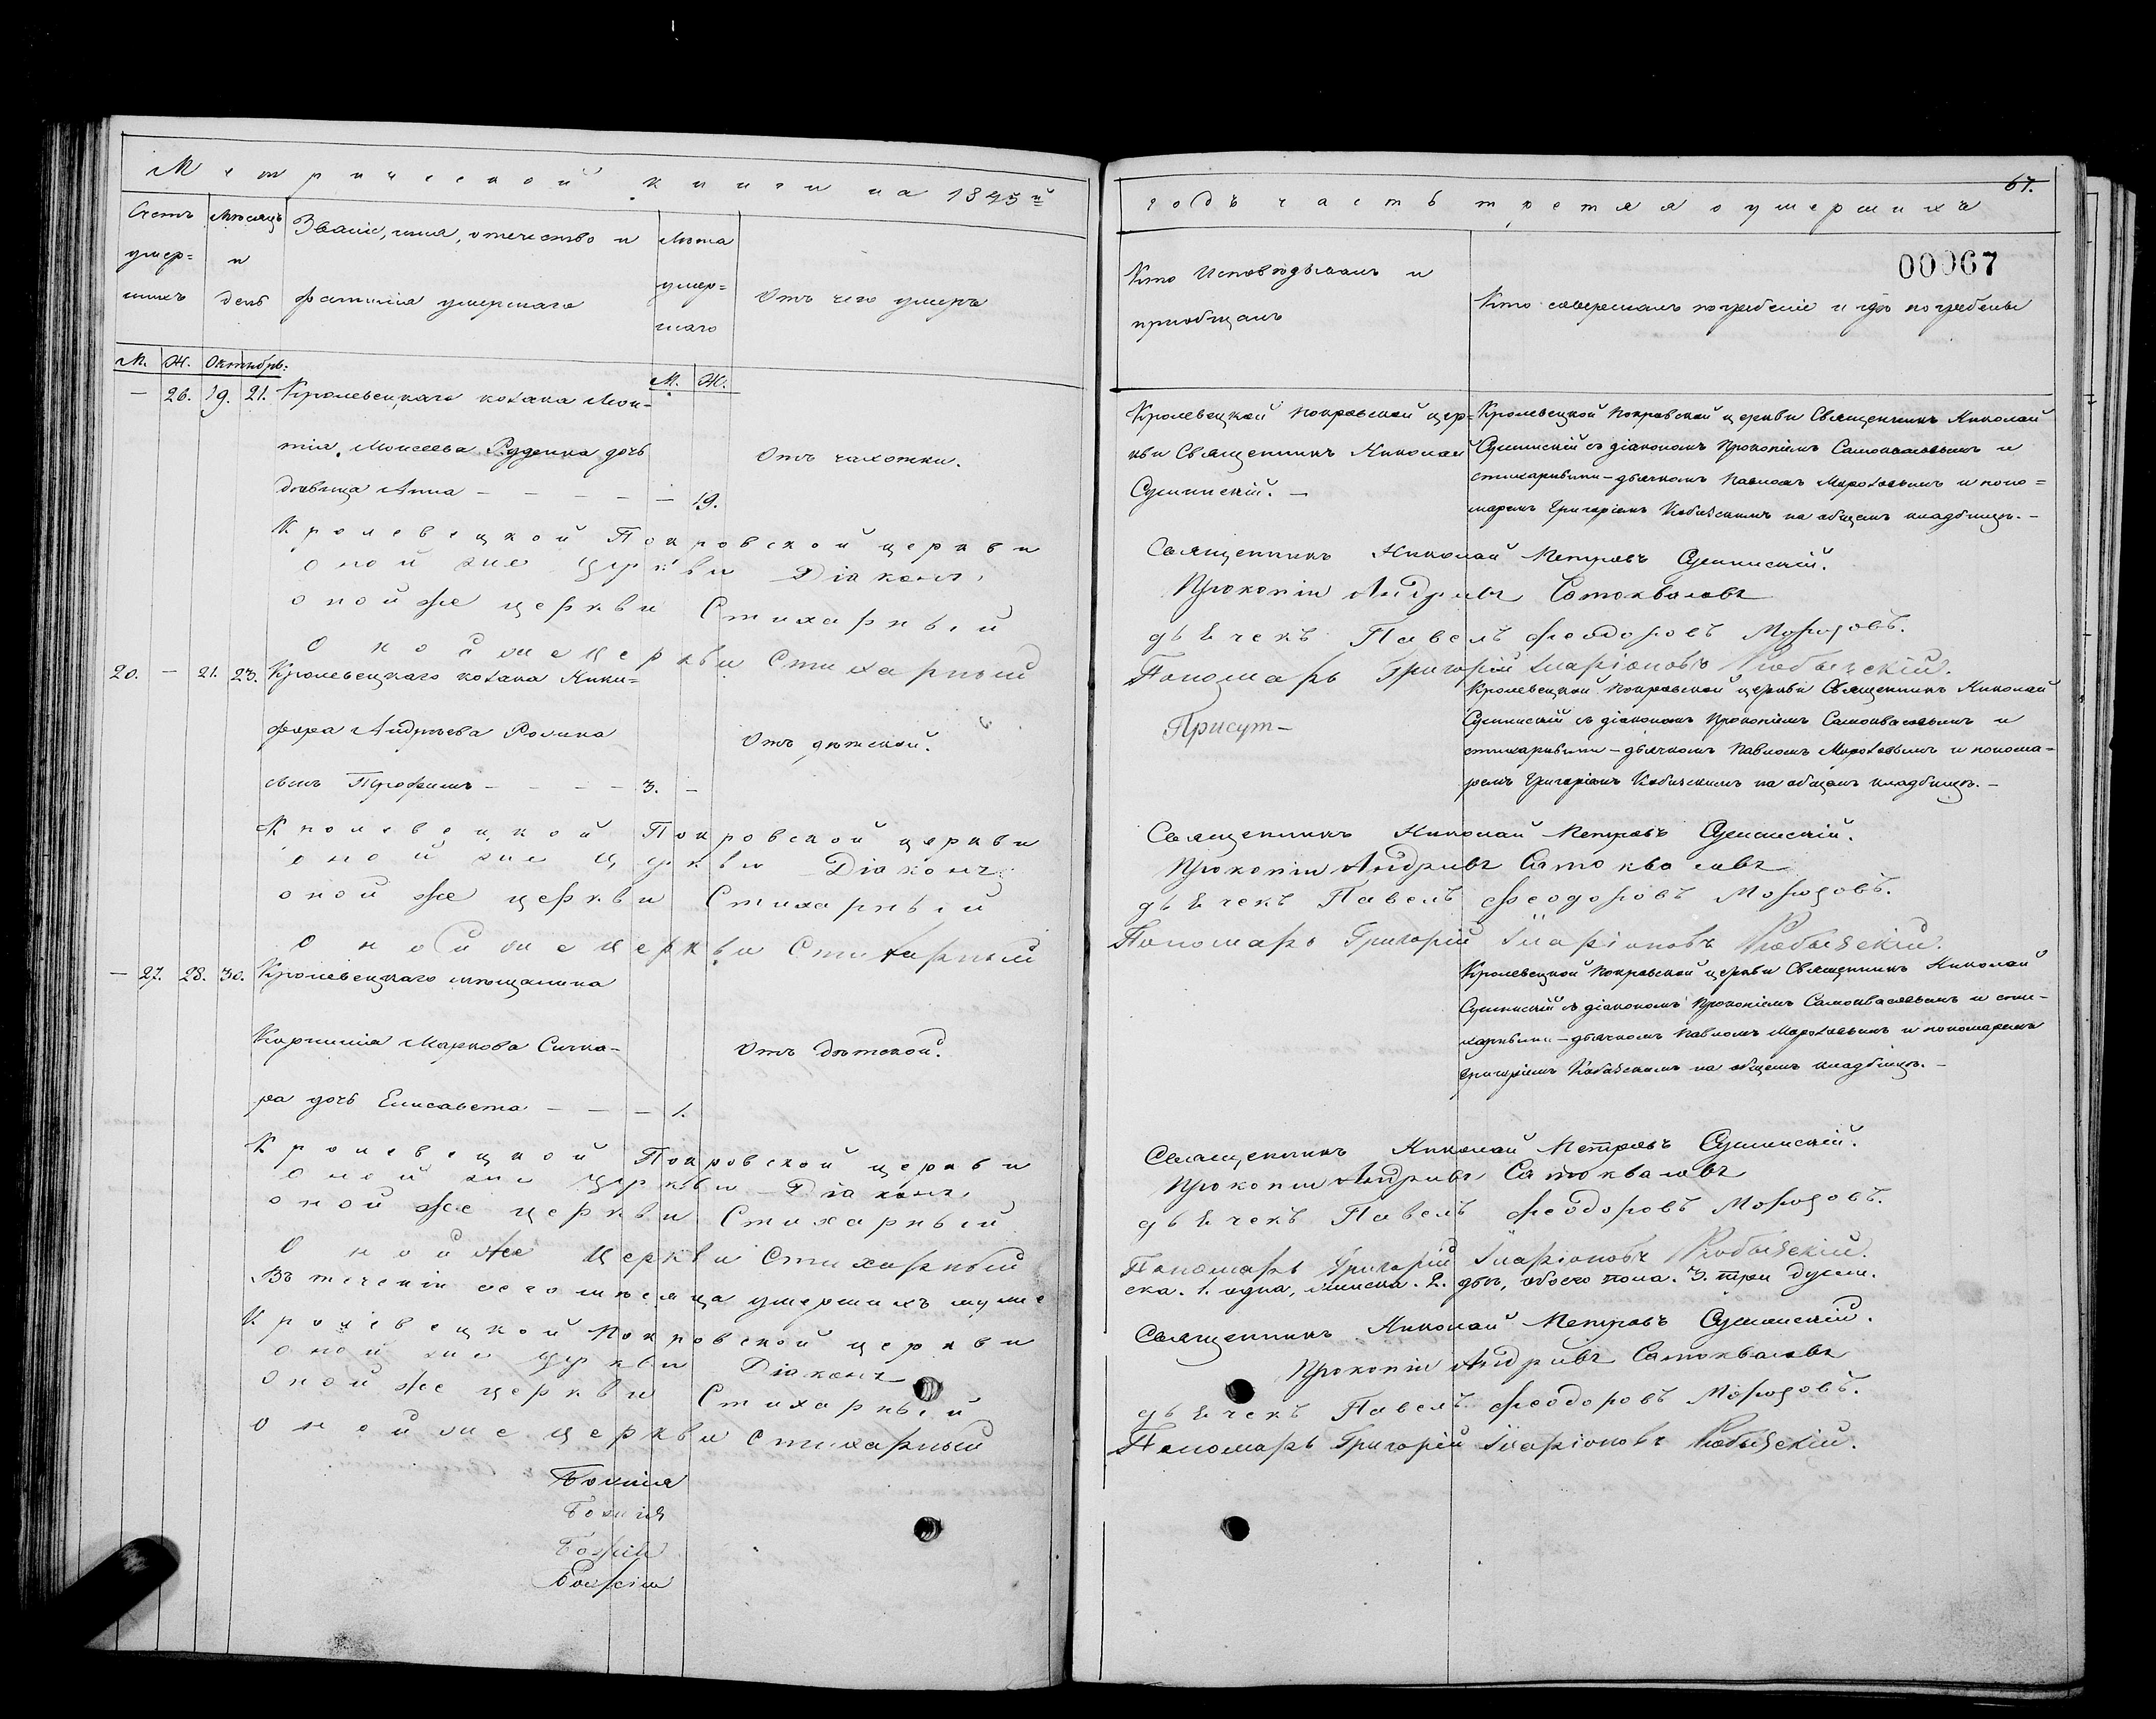 Метрической книги на 1843й
Счетъ умер= шихъ
Мѣсяцъ и день
Званіе, имя, отечество и фамилія умершаго
Лѣта умер= шаго
Отъ чего умеръ
М. Ж. Октябрь. М. Ж.
— 26. 19. 21. Кролевецкаго козака Леон-
тія Моисеева Руденка дочь
Отъ чахотки.
дѣвица Анна — — — — — 19.
Кролевецкой Покровской церкви
оной же церкви Діаконъ
оной же церкви Стихарный
Оной же церкви Стихарный
20. — 21. 23. Кролевецкаго козака Ники=
фора Андреева
Отъ дѣтской.
сынъ Трофимъ — — — — 3. —
Кролевецкой Покровской церкви
оной же церкви Діаконъ
оной же церкви Стихарный
Оной же церкви Стихарный
— 27. 28. 30. Кролевецкаго мѣщанина
Корнилія Маркова
Отъ дѣтской.
ра дочь Елисавета — — — 1.
Кролевецкой Покровской церкви
оной же церкви Діаконъ
оной же церкви Стихарный
Оной же церкви Стихарный
Въ теченіи сего мѣсяца умершихъ муже
Кролевецкой Покровской церкви
оной же церкви Діаконъ
оной же церкви Стихарный
оной же церкви Стихарный
67.
годъ часть третья о умершихъ
00067
Кто Исповѣдывалъ и пріобщалъ
Кто совершалъ погребеніе и гдѣ погребены
Кролевецкой Покровской цер=
кви Священникъ Николай
Сушинскій. —
Кролевецкой Покровской церкви Священникъ Николай
Сушинскій съ діакономъ Прокопіемъ Самоквасовымъ и
стихарными — дьячкомъ Павломъ Морозовымъ и поно=
маремъ Григоріемъ на общемъ кладбищѣ. —
Священникъ Николай Петровъ Сушинскій.
Прокопій Андреевъ Самоквасовъ
дьячекъ Павелъ Феодоровъ Морозовъ.
Пономарь Григорій Иларіоновъ
Присут-
Кролевецкой Покровской церкви Священникъ Николай
Сушинскій съ діакономъ Прокопіемъ Самоквасовымъ и
стихарными — дьячкомъ Павломъ Морозовымъ и понома-
ремъ Григоріемъ на общемъ кладбищѣ. —
Священникъ Николай Петровъ Сушинскій.
Прокопій Андреевъ Самоквасовъ
дьячекъ Павелъ Феодоровъ Морозовъ.
Пономарь Григорій Иларіоновъ
Кролевецкой Покровской церкви Священникъ Николай
Сушинскій съ діакономъ Прокопіемъ Самоквасовымъ и сти-
харными — дьячкомъ Павломъ Морозовымъ и пономаремъ
Григоріемъ на общемъ кладбищѣ. —
Священникъ Николай Петровъ Сушинскій.
Прокопій Андреевъ Самоквасовъ
дьячекъ Павелъ Феодоровъ Морозовъ.
Пономарь Григорій Иларіоновъ
ска. 1. одна, женска. 2. двѣ, обоего пола. 3. три души.
Священникъ Николай Петровъ Сушинскій.
Прокопій Андреевъ Самоквасовъ
дьячекъ Павелъ Феодоровъ Морозовъ.
Пономарь Григорій Иларіоновъ